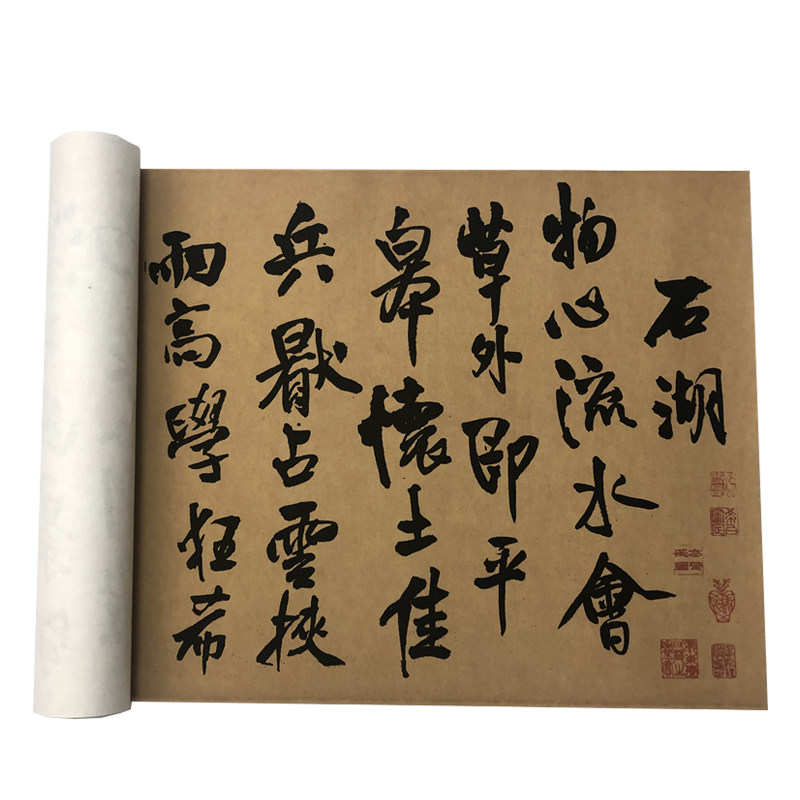 石湖
物心流水會
草外即平
皋懷土佳
兵厭占雲挾
雨高學狂希